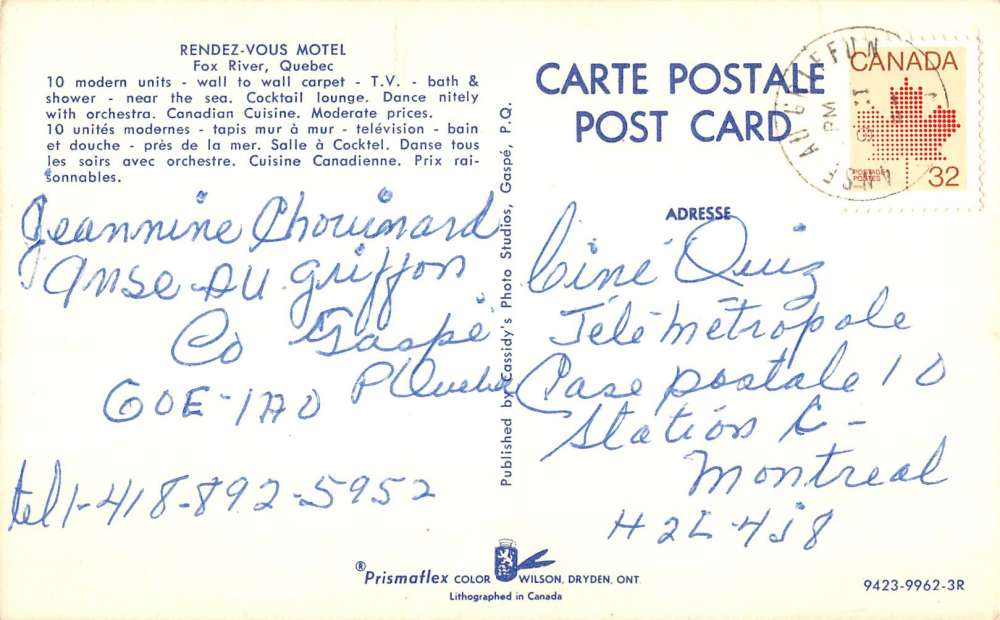 RENDEZ-VOUS MOTEL
Fox River, Quebec
10 modern units - wall to wall carpet - T.V. - bath &
shower - near the sea. Cocktail lounge. Dance nitely
with orchestra. Canadian Cuisine. Moderate prices.
10 unités modernes - tapis mur à mur - telévision - bain
et douche - près de la mer. Salle à Cocktel. Danse tous
les soirs avec orchestre. Cuisine Canadienne. Prix rai-
sonnables.
Jeannine Chouinard
Anse au griffon
Co Gaspé
P Quebec
G0E-1A0
tel 1-418-892-5952
Published by Cassidy's Photo Studios, Gaspé, P.Q.
CARTE POSTALE
POST CARD
CANADA
POSTAGE
POSTES
32
PM
ADRESSE
Ciné Quiz
Télé Métropole
Case postale 10
Station C -
Montreal
H2L 4J8
®Prismaflex COLOR WILSON, DRYDEN, ONT.
Lithographed in Canada
9423-9962-3R